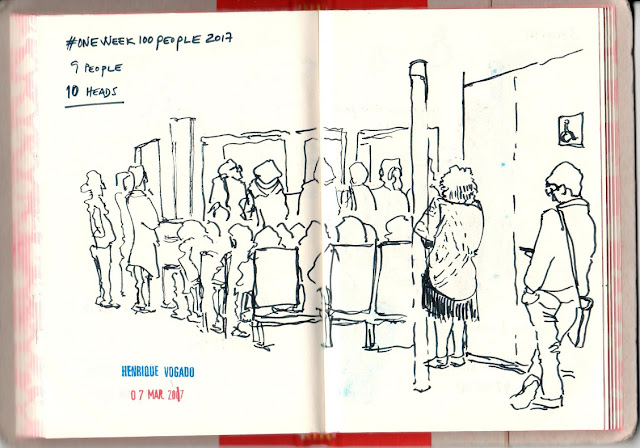 #ONEWEEK100PEOPLE 2017
9 PEOPLE
10 HEADS
HENRIQUE VOGADO
07 MAR. 2017